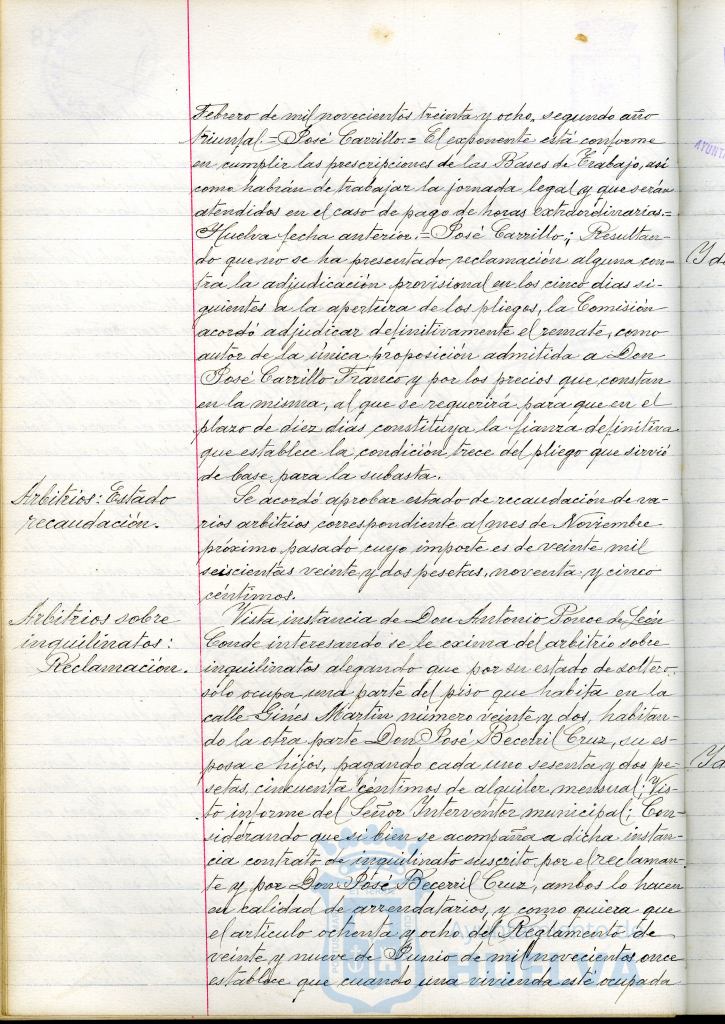 Febrero de mil novecientos treinta y ocho, segundo año
triunfal.= José Carrillo.= El exponente está conforme
en cumplir las prescripciones de las Bases de Trabajo, así
como habrán de trabajar la jornada legal y que serán
atendidos en el caso de pago de horas extraordinarias.=
Huelva fecha anterior.= José Carrillo; Resultan-
do que no se ha presentado reclamación alguna con-
tra la adjudicación provisional en los cinco dias si-
guientes a la apertura de los pliegos, la Comisión
acordó adjudicar definitivamente el remate, como
autor de la única proposición admitida a Don
José Carrillo Franco y por los precios que constan
en la misma, al que se requerirá para que en el
plazo de diez días constituya la fianza definitiva
que establece la condición trece del pliego que sirvió
de base para la subasta.
Arbitrios: Estado
recaudación.
Se acordó aprobar estado de recaudación de va-
rios arbitrios correspondiente al mes de Noviembre
próximo pasado cuyo importe es de veinte mil
seiscientas veinte y dos pesetas, noventa y cinco
céntimos.
Arbitrios sobre
inquilinatos:
Reclamación.
Vista instancia de Don Antonio Ponce de León
Conde interesando se le exima del arbitrio sobre
inquilinatos alegando que por su estado de soltero
sólo ocupa una parte del piso que habita en la
calle Ginés Martín número veinte y dos, habitan-
do la otra parte Don José Becerril Cruz, su es-
posa e hijos, pagando cada uno sesenta y dos pe-
setas, cincuenta céntimos de alquiler mensual; Vis-
to informe del Señor Interventor municipal; Con-
siderando que si bien se acompaña a dicha instan-
cia contrato de inquilinato suscrito por el reclaman-
te y por Don José Becerril Cruz, ambos lo hacen
en calidad de arrendatarios, y como quiera que
el artículo ochenta y ocho del Reglamento de
veinte y nueve de Junio de mil novecientos once
establece que cuando una vivienda esté ocupada
HUELVA